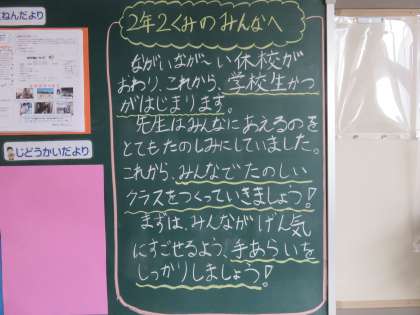 ねんだより
じどうかいだより
2年2くみのみんなへ
ながいなが〜い休校が
おわり、これから、学校生かつ
がはじまります。
先生はみんなにあえるのを
とてもたのしみにしていました。
これから、みんなでたのしい
クラスをつくっていきましょう!
まずは、みんながげん気
にすごせるよう、手あらいを
しっかりしましょう!